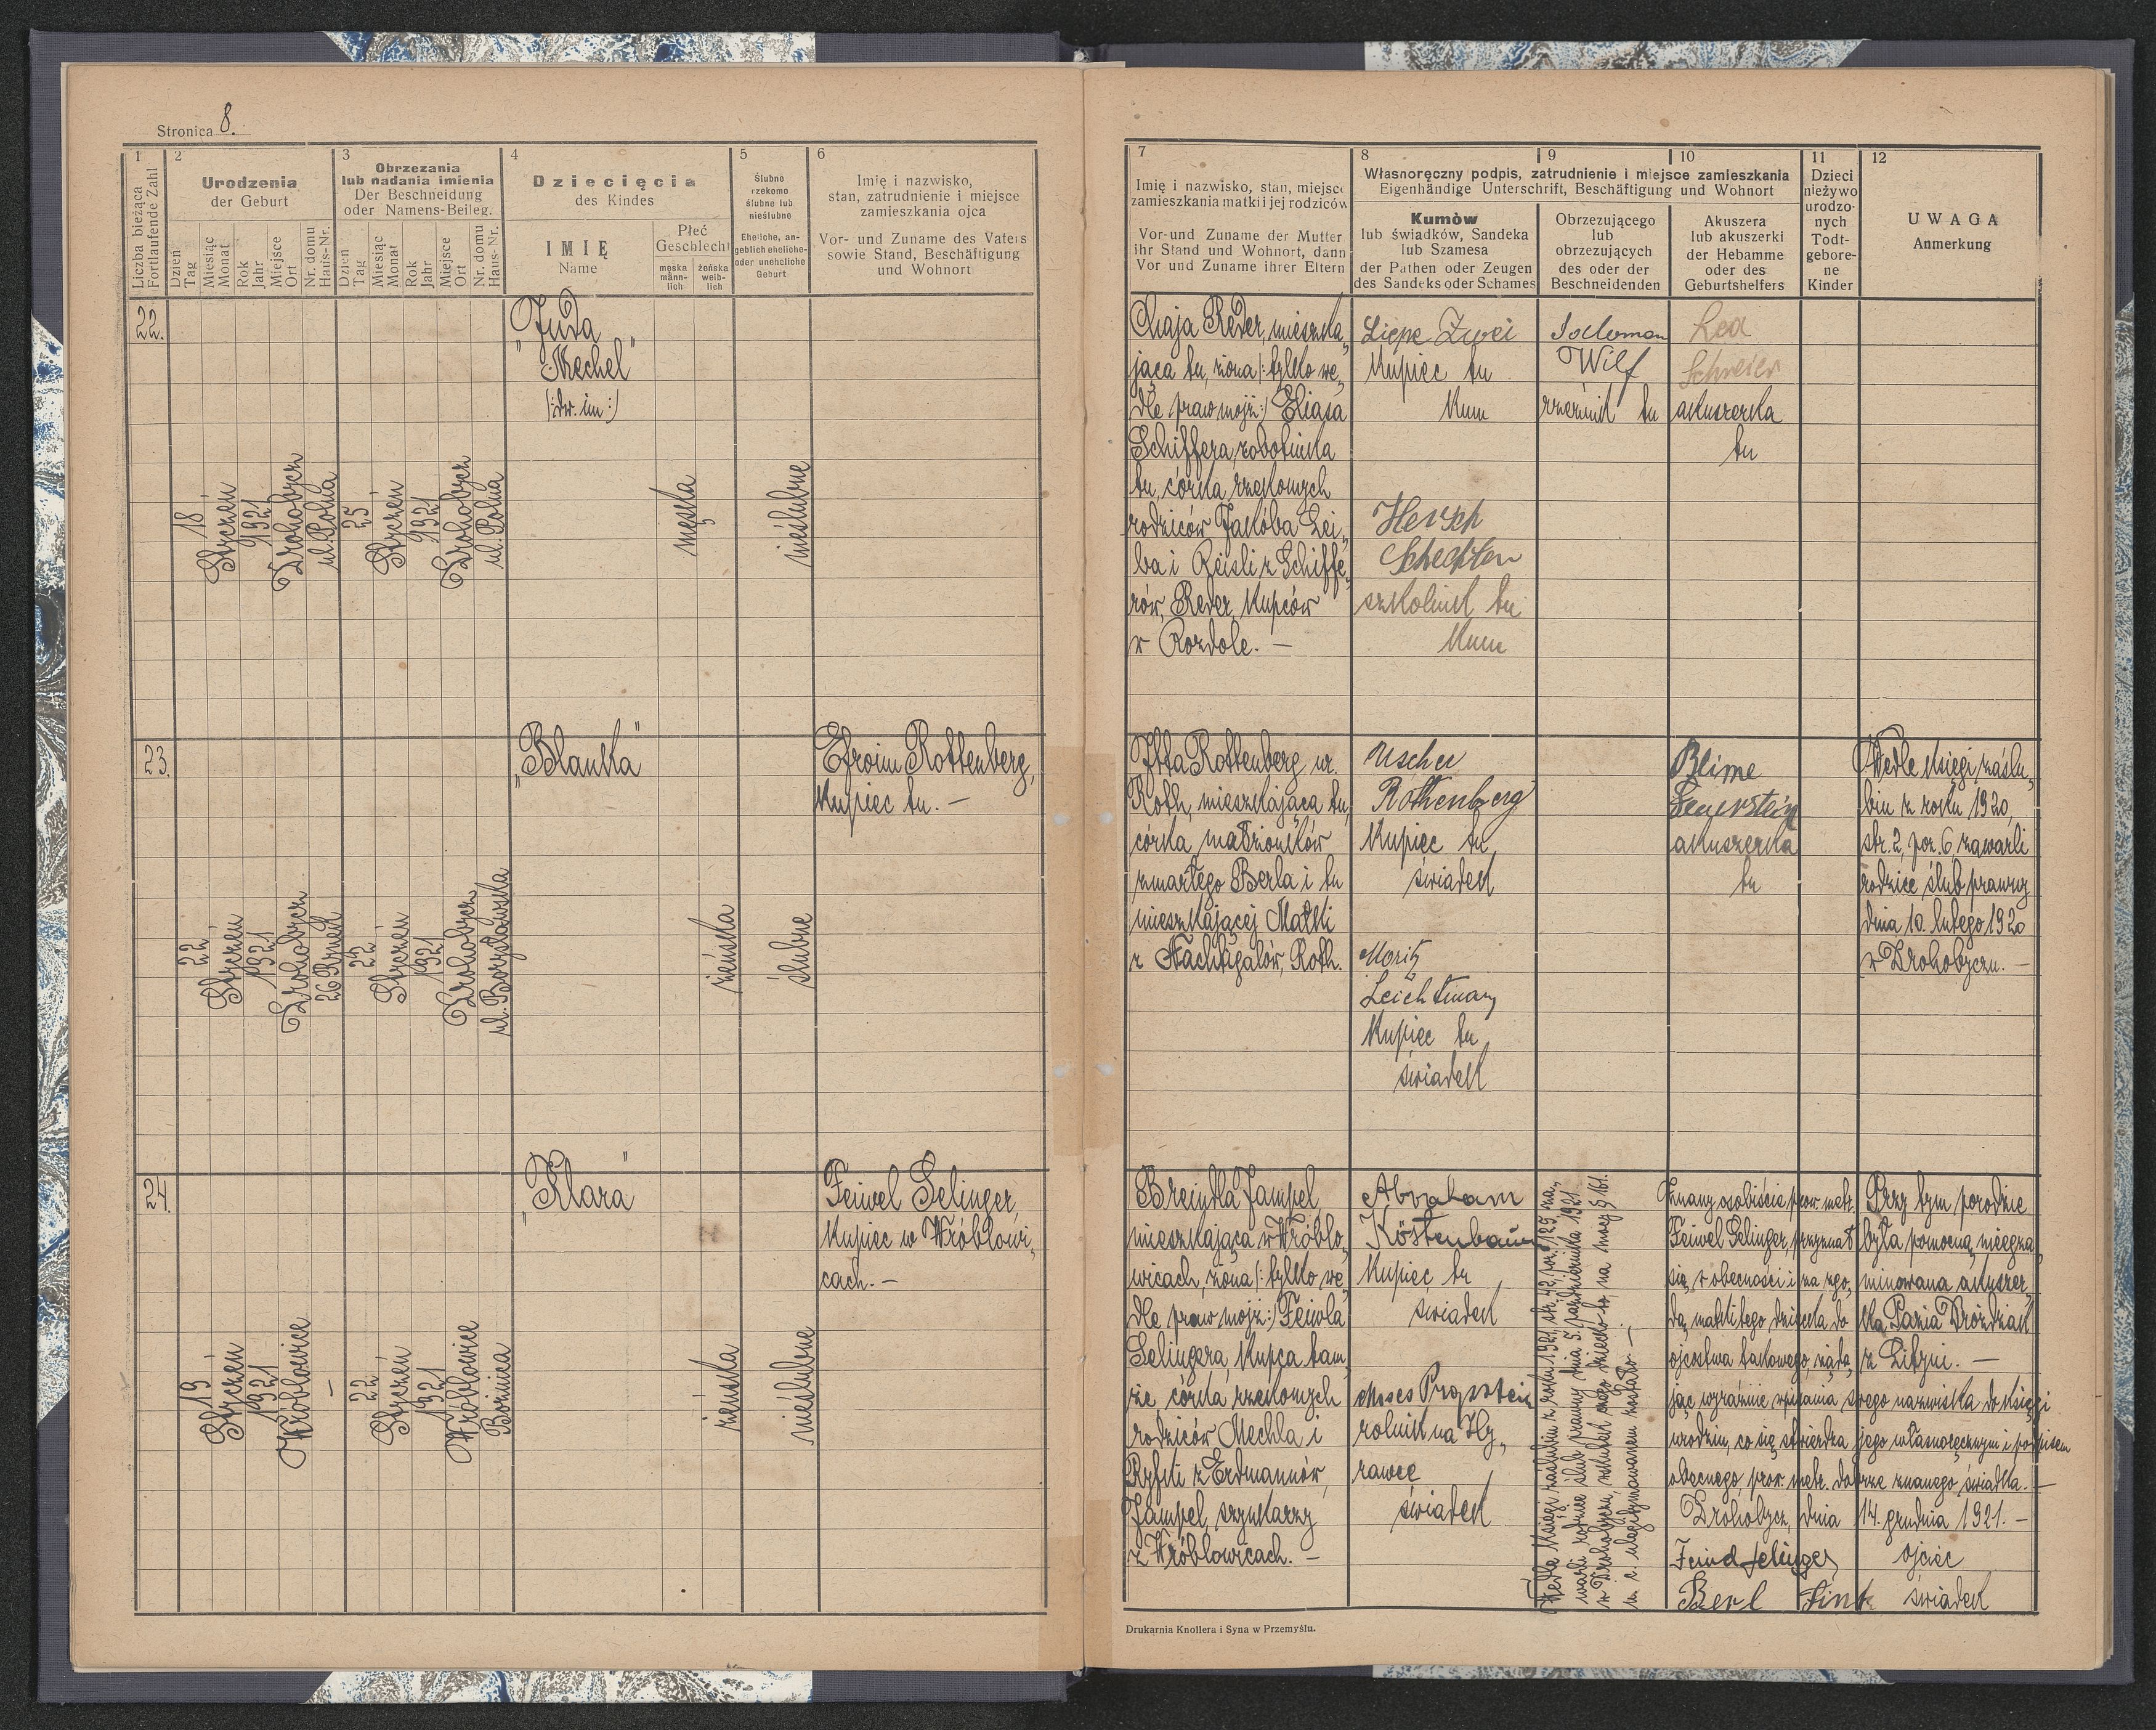 Stronica 8.
1
Liczba bieżąca
Fortlaufende Zahl
2
Urodzenia
der Geburt
Dzień
Tag
Miesiąc
Monat
Rok
Jahr
Miejsce
Ort
Nr. domu
Haus-Nr.
3
Obrzezania
lub nadania imienia
Der Beschneidung
oder Namens-Beileg.
Dzień
Tag
Miesiąc
Monat
Rok
Jahr
Miejsce
Ort
Nr. domu
Haus-Nr.
4
Dziecięcia
des Kindes
IMIĘ
Name
Płeć
Geschlecht
męska
männ-
lich
żeńska
weib-
lich
5
Ślubne
rzekomo
ślubne lub
nieślubne
Eheliche, an-
geblich eheliche-
oder uneheliche
Geburt
6
Imię i nazwisko,
stan, zatrudnienie i miejsce
zamieszkania ojca
Vor- und Zuname des Vaters
sowie Stand, Beschäftigung
und Wohnort
7
Imię i nazwisko, stan, miejsce
zamieszkania matki i jej rodziców
Vor-und Zuname der Mutter
ihr Stand und Wohnort, dann
Vor und Zuname ihrer Eltern
8
9
10
Własnoręczny podpis, zatrudnienie i miejsce zamieszkania
Eigenhändige Unterschrift, Beschäftigung und Wohnort
Kumów
lub świadków, Sandeka
lub Szamesa
der Pathen oder Zeugen
des Sandeks oder Schames
Obrzezującego
lub
obrzezujących
des oder der
Beschneidenden
Akuszera
lub akuszerki
der Hebamme
oder des
Geburtshelfers
11
Dzieci
nieżywo
urodzo-
nych
Todt-
gebore-
ne
Kinder
12
UWAGA
Anmerkung
22.
18
Styczeń
1921
Drohobycz
ul. Polna
25
Styczeń
1921
Drohobycz
ul. Polna
"Juda
Mechel"
(:dw. im:)
męska
nieślubne
Chaja Reder, mieszka„
jąca tu, żona (: tylko we„
dle praw mojż:) Eliasa
Schiffera, robotnika
tu, córka rzekomych
rodziców Jakóba Lei„
ba i Reisli z Schiffe„
rów, Reder, kupców
w Rozdole. —
Liepe Zwei
kupiec tu
kum
Hersch
Schechter
szkolnik tu
kum
Salomon
Wilf
rzeźnik tu
Lea
Schreier
akuszerka
tu
23.
22
Styczeń
1921
Drohobycz
26 Rynek
22
Styczeń
1921
Drohobycz
ul. Borysławska
"Blanka"
żeńska
ślubne
Efroim Rottenberg,
kupiec tu. —
Itta Rottenberg ur.
Roth, mieszkająca tu,
córka małżonków
zmarłego Berla i tu
mieszkającej Matki
z Nachtigalów, Roth.
Ascher
Rothenberg
kupiec tu,
świadek
Moritz
Leichtmann
kupiec tu,
świadek
Blime
Feuerstein
akuszerka
tu
Wedle księgi zaślu„
bin z roku 1920,
str. 2, poz. 6, zawarli
rodzice ślub prawny
dnia 10. lutego 1920
w Drohobyczu. —
24.
19
Styczeń
1921
Wróblowice
—
22
Styczeń
1921
Wróblowice
Bożnica
"Klara"
żeńska
nieślubne
Feiwel Selinger,
kupiec w Wróblowi„
cach. —
Breindla Jampel,
mieszkająca w Wróblo„
wicach, żona (: tylko we„
dle praw mojż:) Feiwla
Selingera, kupca tam„
że córka rzekomych
rodziców Mechla i
Ryfki z Erdmannów,
Jampel, szynkarzy
w Wróblowicach. —
Abraham
Köstenbaum
kupiec tu,
świadek
Moses Propstein
rolnik na Hy„
rawce
świadek
Wedle księgi zaślubin z roku 1921, str. 42, poz. 125 za„
warli rodzice ślub prawny dnia 5. października 1921
w Drohobyczu, wskutek czego dziecko to, na mocy § 161.
u. c. ulegitymowanem zostało. —
Znany osobiście prow. metr.
Feiwel Selinger, przyznał
się, w obecności i za zgo„
dą, matki tego dziecka do
ojcostwa takowego, żąda„
jąc wyraźnie wpisania swego nazwiska do księgi
urodzin, co się stwierdza jego własnoręcznym i podpisem
obecnego, prow. metr. dobrze znanego, świadka. —
Drohobycz, dnia 14. grudnia 1921. —
Feiwel Selinger ojciec
Berl Fink świadek
Przy tym porodzie
była pomocną, nieegza„
minowana akuszer„
ka Pazia Dróżdżak
z Lityni. —
Drukarnia Knollera i Syna w Przemyślu.